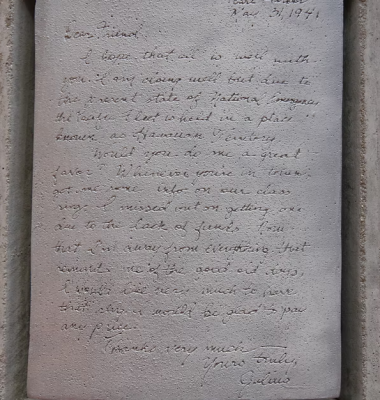 Pearl Harbor
May 31, 1941
Dear Friend:
I hope that all is well with
you. I am doing well but due to
the present state of National Emergency
the fleet is held in a place
known as Hawaiian Territory
Would you do me a great
favor? Whenever you're in town
get me some info on our class
rings. I missed out on getting one
due to the lack of funds. Now
that I'm away from everything that
reminds me of the good old days,
I would like very much to have
that ring. I would be glad to pay
any price.
Thanks very much
Yours truly,